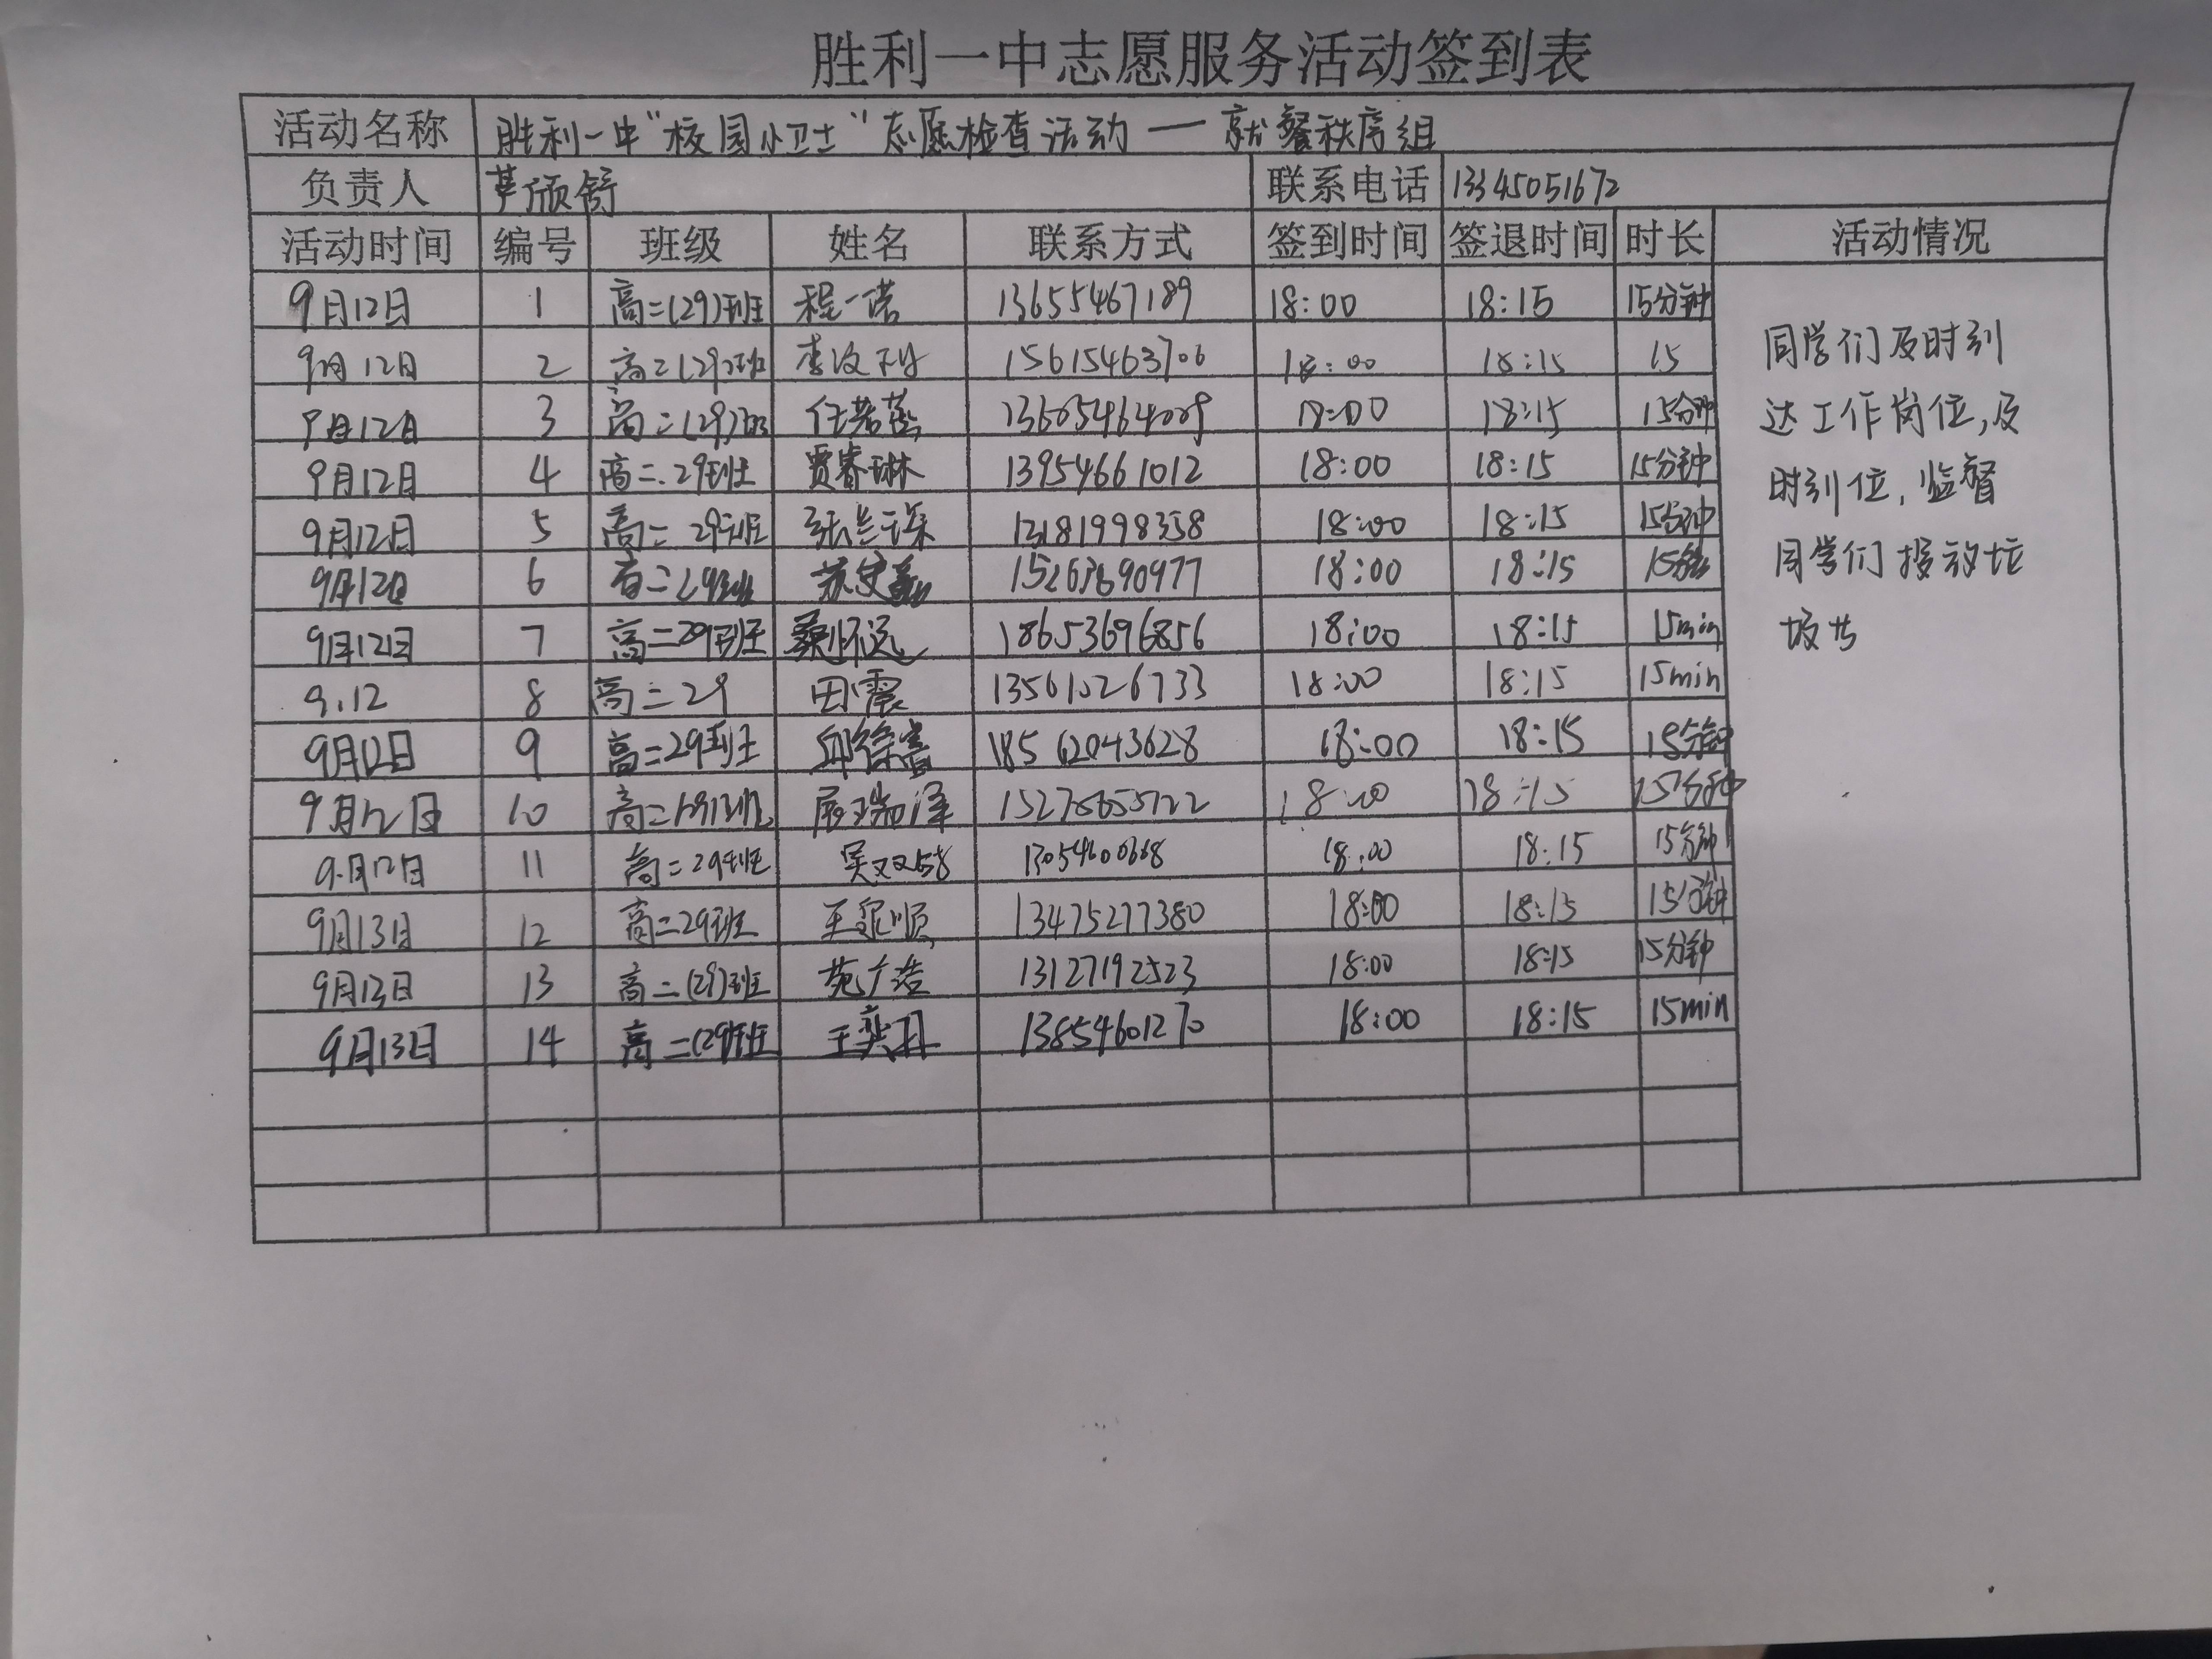 胜利一中志愿服务活动签到表
活动名称 胜利一中“校园小卫士”志愿检查活动 — 就餐秩序组
负责人 欣舒 联系电话 13345051672
活动时间 编号 班级 姓名 联系方式 签到时间 签退时间 时长 活动情况
9月12日 1 高二(29)班 程一诺 13655467189 18:00 18:15 15分钟
9月12日 2 高二(29)班 李 15615463706 18:00 18:15 15
9月12日 3 高二(29)班 任若 18:00 18:15 15分钟
9月12日 4 高二.29班 贾睿琳 13954661012 18:00 18:15 15分钟
9月12日 5 高二 29班 张兰 13181998358 18:00 18:15 15分钟
9月12日 6 高二29班 15263690977 18:00 18:15 15分钟
9月12日 7 高二29班 桑怀远 18653696856 18:00 18:15 15min
9.12 8 高二29 田震 13561526733 18:00 18:15 15min
9月12日 9 高二29班 邱徐 18562043628 18:00 18:15 15分钟
9月12日 10 高二 瑞泽 18:00 18:15 15分钟
9月12日 11 高二29班 吴双 13054600668 18:00 18:15 15分钟
9月13日 12 高二29班 王 顺 13475277380 18:00 18:15 15分钟
9月13日 13 高二(29)班 苑广浩 13127192523 18:00 18:15 15分钟
9月13日 14 高二(29)班 王奕 13854601270 18:00 18:15 15min
同学们及时到
达工作岗位,及
时到位,监督
同学们投放垃
圾